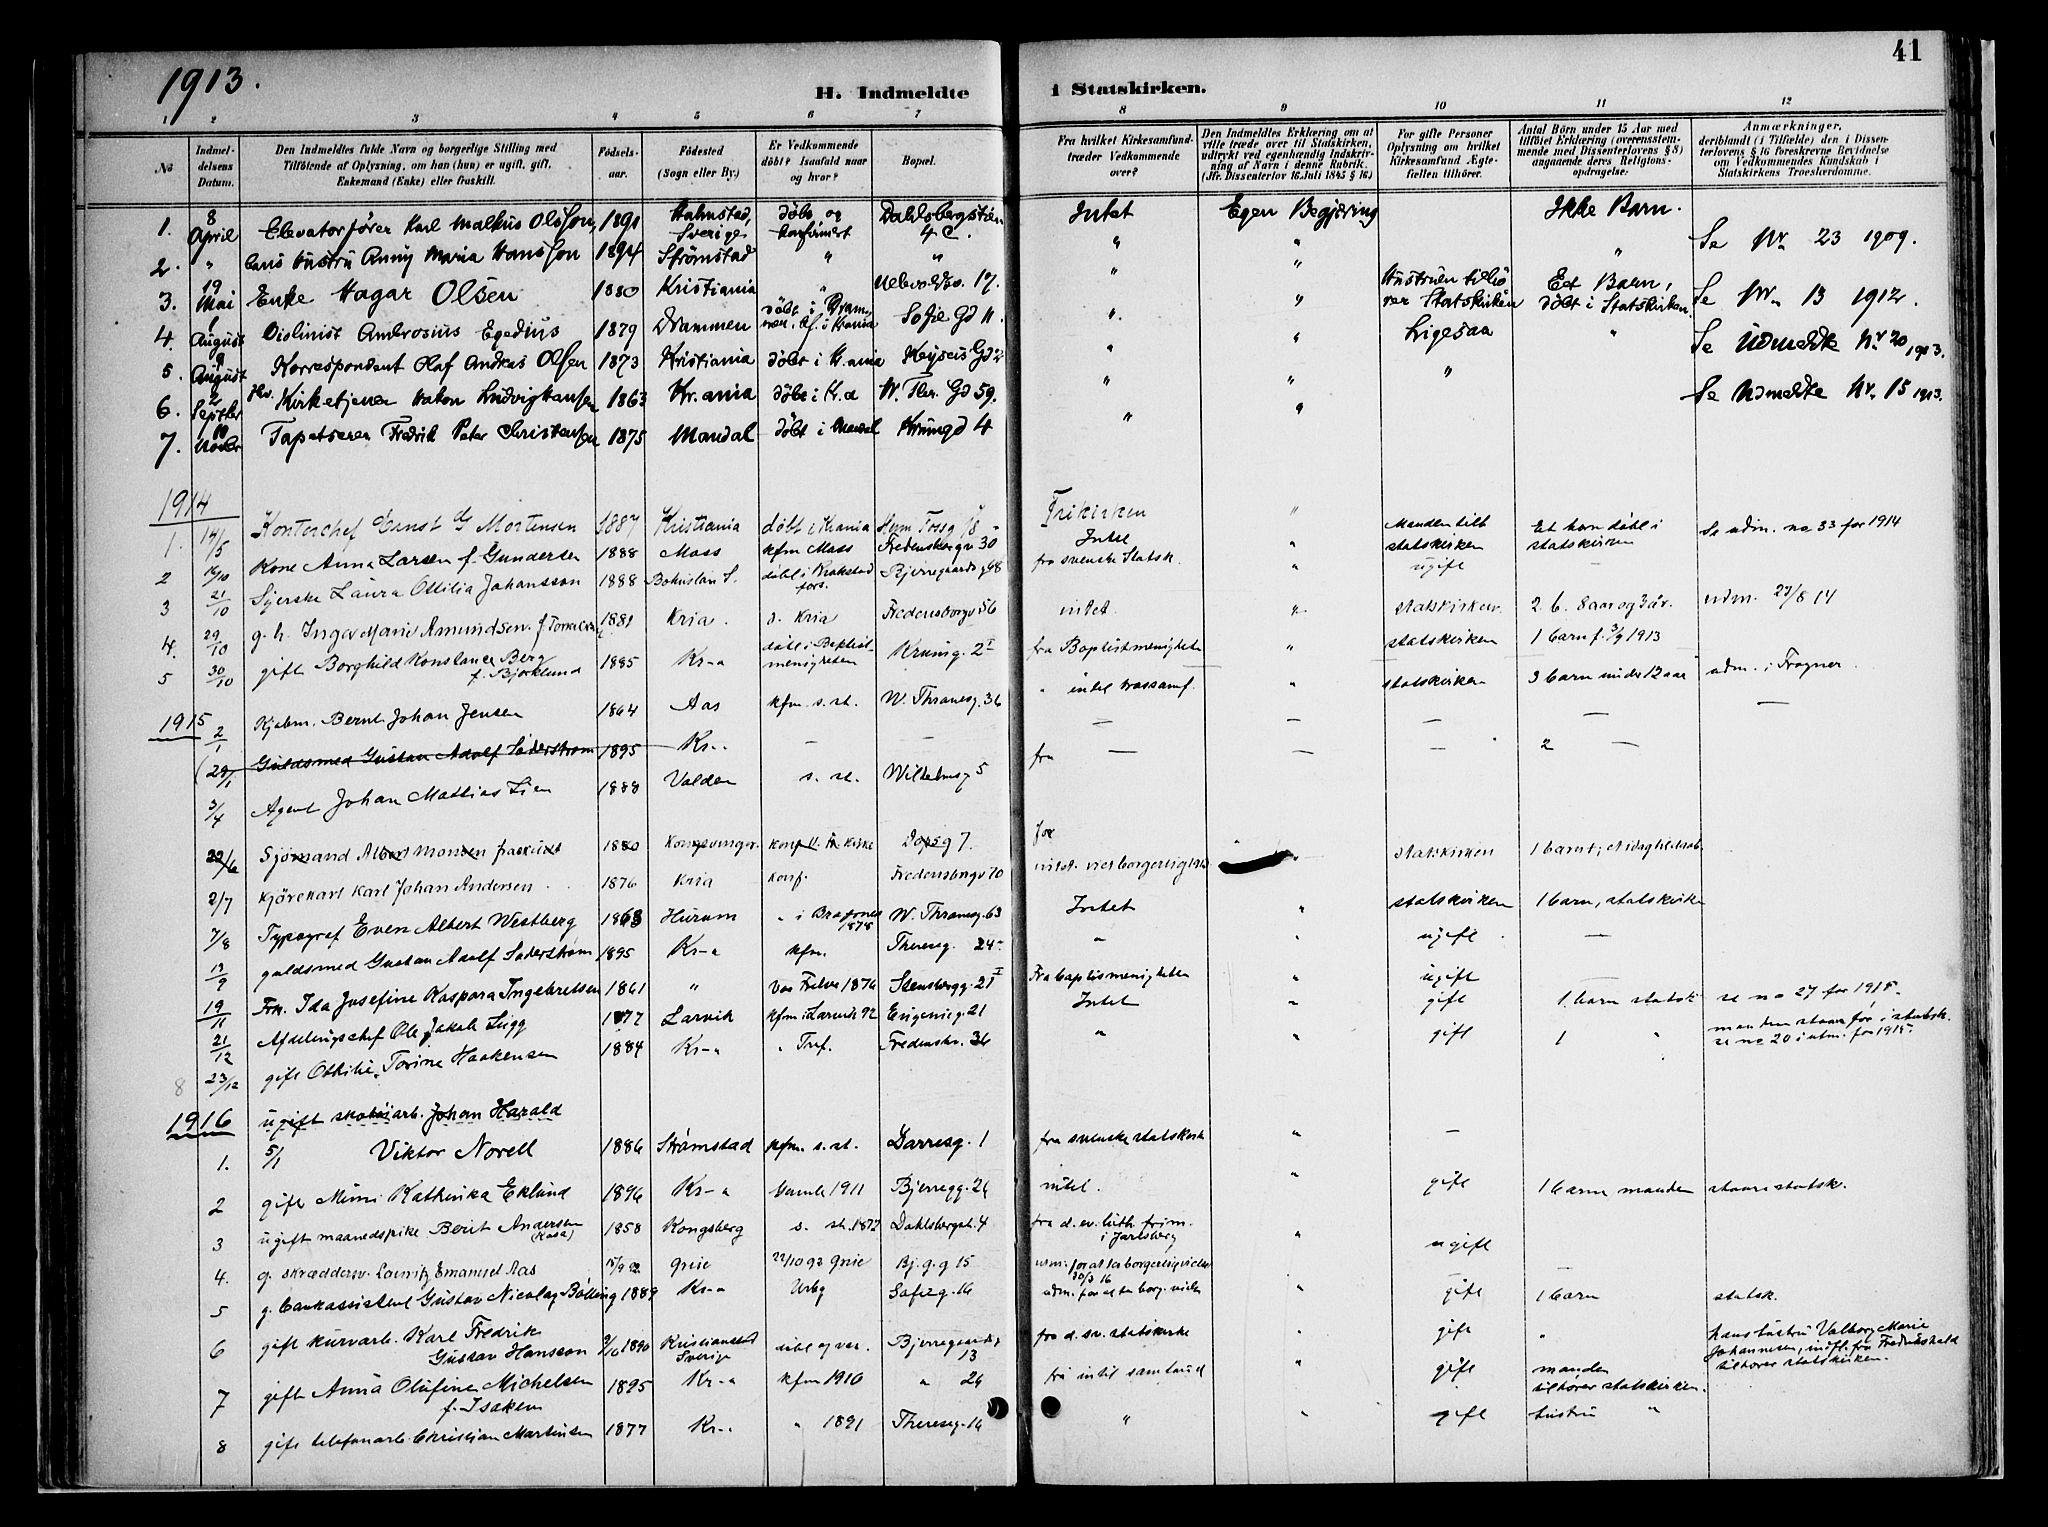 1913.
41
H. Indmeldte i Statskirken.
1 2 3 4 5 6 7 8 9 10 11 12
No
Indmeldelsens Datum.
Den Indmeldtes fulde Navn og borgerlige Stilling med Tilföiende af Oplysning, om han (hun) er ugift, gift, Enkemand (Enke) eller fraskilt.
Födselsaar.
Födested (Sogn eller By.)
Er Vedkommende döbt? Isaafald naar og hvor?
Bopæl.
Fra hvilket Kirkesamfund træder Vedkommende over?
Den Indmeldtes Erklæring om at ville træde over til Statskirken, udtrykt ved egenhændig Indskrivning af Navn i denne Rubrik. (Jfr. Dissenterlov 16 Juli 1845 § 16.)
For gifte Personer Oplysning om hvilket Kirkesamfund Ægtefællen tilhörer.
Antal Börn under 15 Aar med tilföiet Erklæring (overensstemmende med Dissenterlovens § 8) angaaende deres Religionsopdragelse:
Anmærkninger, deriblandt (i Tilfælde) den i Dissenterlovens § 16 foreskrevne Bevidnelse om Vedkommendes Kundskab i Statskirkens Troeslærdomme.
1. 8 April Elevatorfører Karl Malkus Olsson 1891 Halmstad, Sverige døbt og konfirmert Dahlsbergstien 4 C. Intet Egen Begjæring Ikke Barn.
2. " hans Hustru Anny Maria Hansson 1894 Strømstad " " " " " Se Nr. 23 1909.
3. 19 Mai Enke Hagar Olsen 1880 Kristiania " Uelvoldsv. 17. " "
4. 1 August Violinist Ambrosius Egedius 1879 Drammen døbt i Drammen, kf. i Krania Sofie Gd 11. " " Hustruen tilhører Statskirken Et Barn, døbt i Statskirken. Se Nr. 13 1912.
5. 9 August Korrespondent Olaf Andreas Olsen 1873 Kristiania døbt i Kr.ania Keysers Gd 2 " " Ligesaa " Se Udmeldte Nr. 20 1913.
6. 2 Septbr Kirketjener Hakon Ludvig Hansen 1863 Kr.ania døbt i Kr.a W. Thr. Gd 59. " " " Se Udmeldte Nr. 15 1913.
7. 10 Novbr Tapetserer Fredrik Peter Christensen 1875 Mandal døbt i Mandal Krumgd 4 " "
1914
1. 14/5 Kontorchef Ernst G Mortensen 1887 Kristiania døbt i Krania Herm Fossg 18 Frikirken "
2 16/10 Kone Anna Larsen f. Gundersen 1888 Moss kfm Moss Fredensborgv 30 Intet " Manden tilh statskirken Et barn døbt i statskirken Se udm. no 33 for 1914
3 21/10 Syerske Laura Ottilia Johansson 1888 Bohuslän S. Bjerregaardsg 48 fra svenske Statsk. " ugift —
4. 29/10 g. h. Inger Marie Amundsen 1881 Kria. d. Kria Fredensborgv 56 intet. " statskirken. 2 b. 8 aar og 3 år. udm. 27/8 14
5 30/10 gift Borghild Konstance Berg f. Bjørklund 1885 Kr-a døbt i Baptistmenigheten Krumg. 2 I fra Baptistmenigheten " statskirken 1 barn f. 3/9 1913
1915
2/1 Kjøbm. Bernt Johan Jensen 1864 Aas kfm. s. st. W. Thranesg. 36 " intet trossamf. " statskirken 3 barn under 12 aar udm. i Frogner.
(29/1 Guldsmed Gustav Adolf Söderstrøm 1895 Kr-- — — — — — — —
3/4 Agent Johan Mattias Lien 1888 Valden s. st. Wilhelmsg 5 fra — — — 2 —
22/6 Sjømand Albert Monsen 1880 Kongsvinger. konf Dopsg 7. for statskirken
2/7 Kjørekarl Karl Johan Andersen 1876 Kria konf. Fredensborgv 70 intet. vies borgerlig
7/8 Typograf Even Albert Westberg 1868 Hurum " i Bragernes 1878 W. Thranesg. 63 Intet " statskirken 1 barn, statskirken
13/9 guldsmed Gustav Adolf Söderstrøm 1895 Kr-a kfm. Theresesg. 24 " " ugift —
19/11 Frk. Ida Josefine Kaspara Ingebretsen 1861 " Vor Frelse 1876 Stensbergg. 21 I Fra baptistmenigheten " ugift —
21/12 Afdelingschef Ole Jakob Lugg 1877 Larvik kfm i Larvik 92 Eugenieg. 21 Intet " gift 1. barn statsk se no 27 for 1915.
8 23/12 gift Ottilie Torine Haakensen 1884 Kr-a " Tref. Fredensbv. 36 " " gift 1 " manden staar før i statsk. se no 20 i utm. for 1915.
1916
1. 5/1 ugift skotøiarb. Johan Harald Viktor Norell 1886 Strømstad kfm. s. st. Darresg. 1 fra svenske statskirke " —
2 gift Mimi Kathinka Eklund 1896 Kr-a Gamle 1911 Bjerregg. 26 intet. " gift 1 barn manden staar i statsk.
3 ugift maanedspike Berit Andersen (Kasa) 1858 Kongsberg s. st. 1872 Dahlsbergst. 4 fra d. ev. luth. frim. i Jarlsberg " ugift —
4. g. skræddersv. Emanuel Aas Grue 22/10 92 Grue Bj.g.g 15 30/3 16
5 g. bankassistent Gustav Nicolay Bølling 1889 Kr-a Urbg Sofieg. 16 " gift 1 barn statsk.
6 gift kurvarb. Karl Fredrik Gustav Hansson 9/10 1890 Kristianstad Sverige døbt og vac. Bjerregaardsg 13 fra d. sv. statskirke " gift " hans hustru Valborg Marie Johannesen, indfl. fra Fredrikshald tilhører statskirken.
7 gift Anna Olufine Michelsen f. Isaksen 1895 Kr-a kfm 1910 " 26 fra intet samfund " gift manden tilhører statskirken.
8 gift telefonarb. Christian Martinsen 1877 Kr-- " 1891 Theresesg. 16 " " gift hustru "